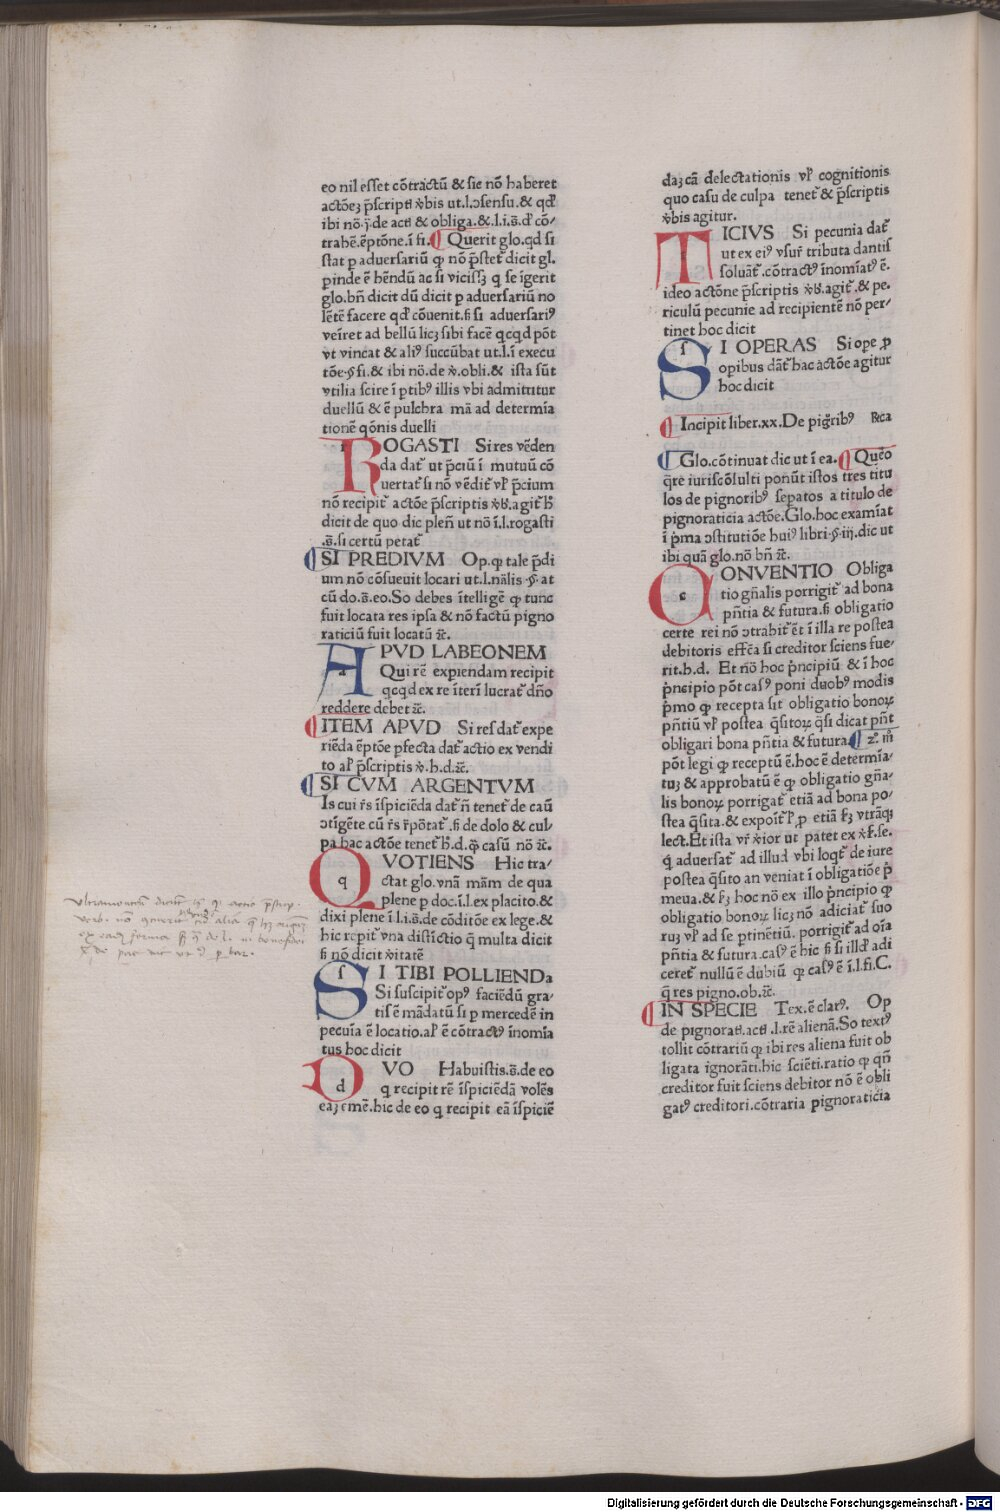 eo nil esset cōtractū & sic nō haberet
actōeʒ p̄scripti v̄bis ut.l.ɔsensu.& qd'
ibi nō.j.de acti & obliga.&.l.i.s̄.d' cō-
trahē.ēptōne.i fi. Querit glo.qd si
stat p aduersariū ꝙ nō p̄stet' dicit gl.
pinde ē hēndū ac si viciss; q se īgerit
glo.bn̄ dicit dū dicit p aduersariū no
lētē facere qd' cōuenit.s̄ si aduersari9
veīret ad bellū licʒ sibi facē qcqd pōt
vt vincat & ali9 succūbat ut.l.i execu
tōe.§ fi.& ibi nō.de v̄.obli.& ista sūt
vtilia scire i ptib9 illis vbi admittitur
duellū & ē pulchra mā ad determīa
tionē qōnis duelli
ROGASTI Si res vēden
da dat' ut p̄ciū i mutuū cō
uertat' si nō vēdit' vl' p̄cium
nō recipit' actōe p̄scriptis v̄b.agit' h'
dicit de quo dic plen' ut nō i.l.rogasti
.s̄.si certū petat'
SI PREDIVM Op.ꝙ tale p̄di
um nō cōsueuit locari ut.l.nālis .§ at
cū do.s̄.eo.So debes ītelligē ꝙ tunc
fuit locata res ipsa & nō factū pigno
raticiū fuit locatū ⁊c̄.
APVD LABEONEM
Qui rē expiendam recipit
qcqd ex re īterī lucrat' dn̄o
reddere debet ⁊c̄.
ITEM APVD Si res dat' expe
riēda ēptōe pfecta dat' actio ex vendi
to al' p̄scriptis v̄.h.d.⁊c̄.
SI CVM ARGENTVM
Is cui r̄s īspiciēda dat' n̄ tenet' de caū
ɔtigēte cū r̄s r̄pōtat' .s̄ de dolo & cul-
pa hac actōe tenet' h'.d.ꝙ casū nō ⁊c̄.
QVOTIENS Hic tra-
ctat glo.vnā mām de qua
plene p doc.i.l.ex placito.&
dixi plene i.l.i.s̄.de cōditōe ex lege.&
hic repit' vna distīctio q̄ multa dicit
s̄ nō dicit v̄itatē
SI TIBI POLLIENDa
Si suscipit' op9 faciēdū gra-
tis ē mādatū si p mercedē in
pecuīa ē locatio.al' ē cōtract9 īnomīa
tus hoc dicit
DVO Habuistis.s̄.de eo
q recipit rē īspiciēdā volēs
eaʒ emē.hic de eo q recipit eā īspiciē
daʒ cā delectationis vl' cognitionis
quo casu de culpa tenet' & p̄scriptis
v̄bis agitur.
TICIVS Si pecunia dat'
ut ex ei9 vsur' tributa dantis
soluāt' .cōtract9 īnomīat9 ē.
ideo actōne p̄scriptis v̄b.agit' .& pe-
riculū pecunie ad recipientē nō per-
tinet hoc dicit
SI OPERAS Si ope p
opibus dāt' hac actōe agitur
hoc dicit
Incipit liber.xx.De pigr̄ib9 Rca
Glo.cōtinuat dic ut i ea. Quero
q̄re iuriscōlulti ponūt istos tres titu
los de pignorib9 sepatos a titulo de
pignoraticia actōe.Glo.hoc examīat
i p̄ma ɔstitutiōe hui9 libri.§.iij.dic ut
ibi quā glo.nō bn̄ ⁊c̄.
CONVENTIO Obliga
tio gn̄alis porrigit' ad bona
pn̄tia & futura.s̄ obligatio
certe rei nō ɔtrabit' ēt i illa re postea
debitoris effc̄a si creditor sciens fue-
rit.h.d. Et nō hoc p̄ncipiū & i hoc
p̄ncipio pōt cas9 poni duob9 modis
p̄mo ꝙ recepta sit obligatio bonoꝝ
pn̄tiū vl' postea q̄sitoꝝ q̄si dicat pn̄t
obligari bona pn̄tia & futura. 2o. m
pōt legi ꝙ receptū ē.hoc ē determīa-
tuʒ & approbatū ē ꝙ obligatio gn̄a-
lis bonoꝝ porrigat' etiā ad bona po-
stea q̄sita.& expoīt' p etiā s̄ʒ vtrāqʒ
lect.Et ista vr̄ v̄ior ut patet ex v̄.s̄.se.
q̄ aduersat' ad illud vbi loqt' de iure
postea q̄sito an veniat i obligatiōe p̄
meua.& s̄ʒ hoc nō ex illo p̄ncipio ꝙ
obligatio bonoꝝ licʒ nō adiciat' suo
ruʒ vl' ad se ptinētiū. porrigit' ad oīa
pn̄tia & futura.cas9 ē hic s̄ si illd' adi
ceret' nullū ē dubiū ꝙ cas9 ē i.l.fi.C.
q̄ res pigno.ob.⁊c̄.
IN SPECIE Tex.ē clar9. Op
de pignorati.acti .l.rē alienā.So text9
tollit cōtrariū ꝙ ibi res aliena fuit ob
ligata ignorāti.hic sciēti.ratio ꝙ qn̄
creditor fuit sciens debitor nō ē obli
gat9 creditori.cōtraria pignoraticia
Digitalisierung gefördert durch die Deutsche Forschungsgemeinschaft - DFG